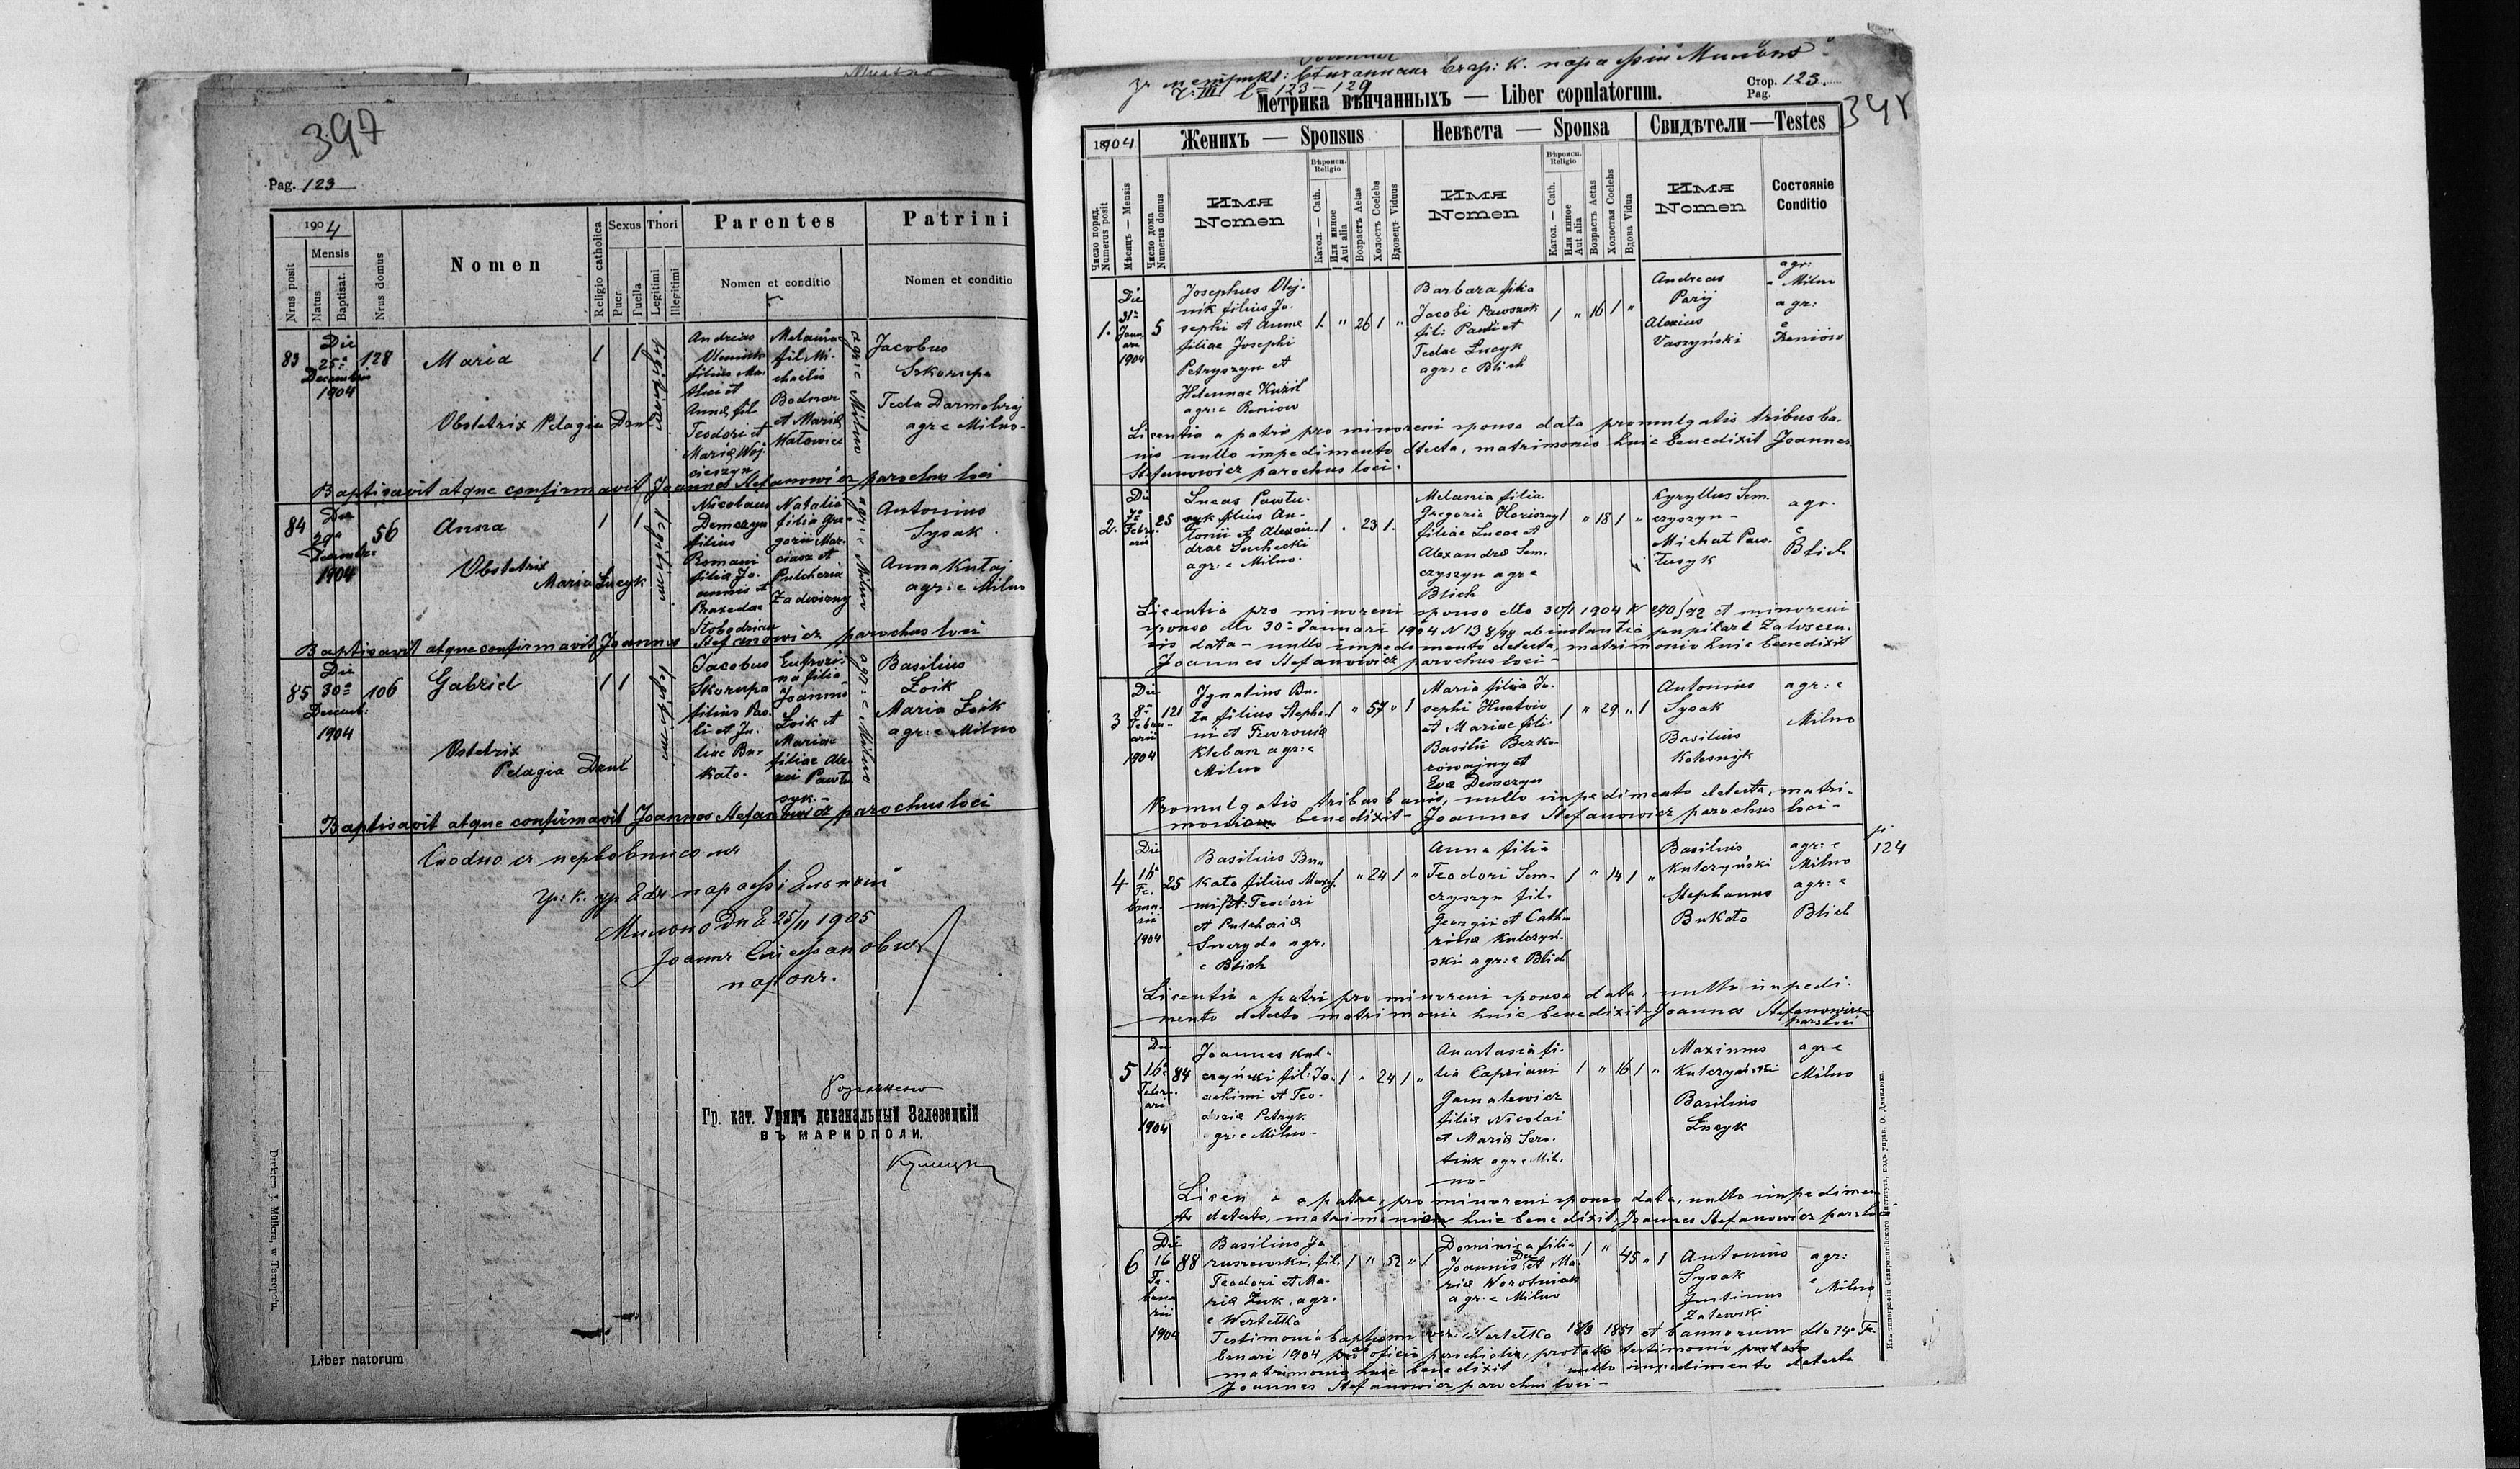 397
Pag. 123
1904
Mensis
Nrus posit
Natus
Baptisat.
Nrus domus
Nomen
Religio catholica
Sexus
Puer
Puella
Thori
Legitimi
Illegitimi
Parentes
Nomen et conditio
Patrini
Nomen et conditio
83
Die
25a
Decembris
1904
128
Maria
1
1
legitimi
Andreas
filius Ma-
thei et
Annae fil
Teodori et
Mariae Woj
cieszyn
Melania
fil. Mi-
chaelis
Bodnar
et Mariae
Watowicz
agr: e Milno
Jacobus
Skorupa
Tecla Darmohraj
agr e Milno-
Obstetrix Pelagia Dzul
Baptisavit atque confirmavit Joannes Stefanowicz parochus loci
84
Die
29a
Decembris
1904
56
Anna
1
1
legitimi
Nicolaus
Demczyn
filius
Romani
filii Jo-
annis et
Praxedae
Natalia
filia Gre-
gorii Mar-
ciasz et
Pulcheria
Zadwirny
agr: e Milno
Antonius
Sysak
Anna Kutaj
agr: e Milno
Obstetrix
Maria Łucyk
Baptisavit atque confirmavit Joannes Stefanowicz parochus loci
85
Die
30a
Decemb:
1904
106
Gabriel
1
1
legitimi
Jacobus
Skorupa
filius Pau-
li et Ju-
liae Bu-
kato-
Eufrozi-
na filia
Joannis
Łoik et
Mariae
filiae Ale-
xei Pawłu
syk.-
agr: e Milno
Basilius
Łoik
Maria Łoik
agr: e Milno
Obstetrix
Pelagia Dzul
Baptisavit atque confirmavit Joannes Stefanowicz parochus loci
Милно Дня 25/II 1905
Іоаннъ Стефановичъ
парох.
Гр. кат. Урядъ деканальный Залозецкій
ВЪ МАРКОПОЛИ.
Liber natorum
Drukiem J. Müllera, w Tarnopolu.
ч. III l = 123-129
Метрика вѣнчанныхъ — Liber copulatorum.
Стор. 123.
Pag.
1904
Женихъ — Sponsus
Невѣста — Sponsa
Свидѣтели — Testes
Число поряд.
Numerus posit
Мѣсяць — Mensis
Число дома
Numerus domus
Имя
Nomen
Вѣроисп.
Religio
Катол. — Cath.
Или инное
Aut alia
Возрастъ Aetas
Холостъ Coelebs
Вдовецъ Viduus
Имя
Nomen
Вѣроисп.
Religio
Катол. — Cath.
Или инное
Aut alia
Возрастъ Aetas
Холостая Coelebs
Вдова Vidua
Имя
Nomen
Состояніе
Conditio
1.
Die
31a
Janu
arii
1904
5
Josephus Olej-
nik filius Jo-
sephi et Annae
filiae Josephi
Petryszyn et
Helennae Kuźil
agr: e Reniow
1. " 26 1 "
Barbara filia
Jacobi Pawosnok
fil: Pauli et
Teclae Łucyk
agr: e Blich
1 " 16 1 "
Andreas
Parij
Alexius
Vaszyński
agr:
e Milno
agr:
e
Reniow
Licentia a patris pro minoreni sponsa data promulgatis tribus ba-
nis nullo impedimento detecta, matrimonio huic benedixit Joannes
Stefanowicz parochus loci.
2.
Die
7a
Febru
arii
25
Lucas Pawłu-
syk filius An-
tonii et Alexan-
drae Suchecki
agr: e Milno.
1 . 23 1 .
Melania filia
Gregorii Hariszny
filiae Lucae et
Alexandrae Sem-
czyszyn agr e
Blich
1 " 18 1 "
Kyryllus Sem-
czyszyn -
Michał Paw-
łusyk
agr.
e
Blich
Licentia pro minoreni sponso dto 30/1 1904 N 270/92 et minoreni
sponsa dto 30a Januari 1904 N 138/98 ab instantia pupilare Załoscen-
sis data - nullo impedimento detecta, matrimonio huic benedixit
Joannes Stefanowicz parochus loci -
3
Die
8a
Febru-
arii
1904
121
Ignatius Bu-
ta filius Stepha-
ni et Fewronia
Kleban agr: e
Milno
1 " 57 " 1
Maria filia Jo-
sephi Hnatow
et Mariae fili-
Basilii Bezko-
rowajny et
Evae Demczyn
1 " 29 " 1
Antonius
Sysak
Basilius
Kolesnyk
agr: e
Milno
Promulgatis tribus banis, nullo impedimento detecta, matri-
monium benedixit - Joannes Stefanowicz parochus loci -
p.
124
4
Die
16a
Fe-
brua-
rii
1904
25
Basilius Bu-
kato filius Maxy-
mi fil: Teodori
et Pulcheria
Sweryda agr.
e Blich
1 " 24 1 "
Anna filia
Teodori Sem-
czyszyn fil.
Georgii et Catha
rinae Kulczyń-
ski agr: e Blich
1 " 14 1 "
Basilius
Kulczyński
Stephanus
Bukato
agr: e
Milno
agr: e
Blich
Licentia a patri pro minoreni sponsa data, nullo impedi-
mento detecto matrimonia huic benedixit - Joannes Stefanowicz
par: loci
5
Die
16a
Febru-
arii
1904
84
Joannes Kul-
czyński fil: Jo-
achimi et Teo-
doriae Petryk
agr: e Milno -
1 " 24 1 "
Anastasia fi-
lia Capriani
Gamalewicz
filia Nicolai
et Mariae Sero-
tiuk agr e Mil-
no -
1 " 16 1 "
Maximus
Kulczyński
Basilius
Łucyk
agr e
Milno
Licen a a patre, pro minoreni sponsa data, nullo impedimen
to detecto, matrimonium huic benedixit, Joannes Stefanowicz par: loci
6
Die
16
Fe-
brua
rii
1904
88
Basilius Ja
ruszewski, fil.
Teodori et Ma-
riae Żuk, agr.
e Wertełka
1 " 52 " 1
Dominica filia
Joannis Du et Ma-
riae Worotniak
agr: e Milno
1 " 45 " 1
Antonius
Sysak
Justinus
Zalewski
agr:
e
Milno
Testimonia baptismi ver: Wertełka 18/3 1851 et bannorum dto 14a Fe
bruari 1904 ab oficio parochialis, protato testimonio protato
matrimonio huic benedixit nullo impedimento detecta
Joannes Stefanowicz parochus loci -
Изъ типографіи Ставропигійского Института, подъ управ. О. Данилюка.